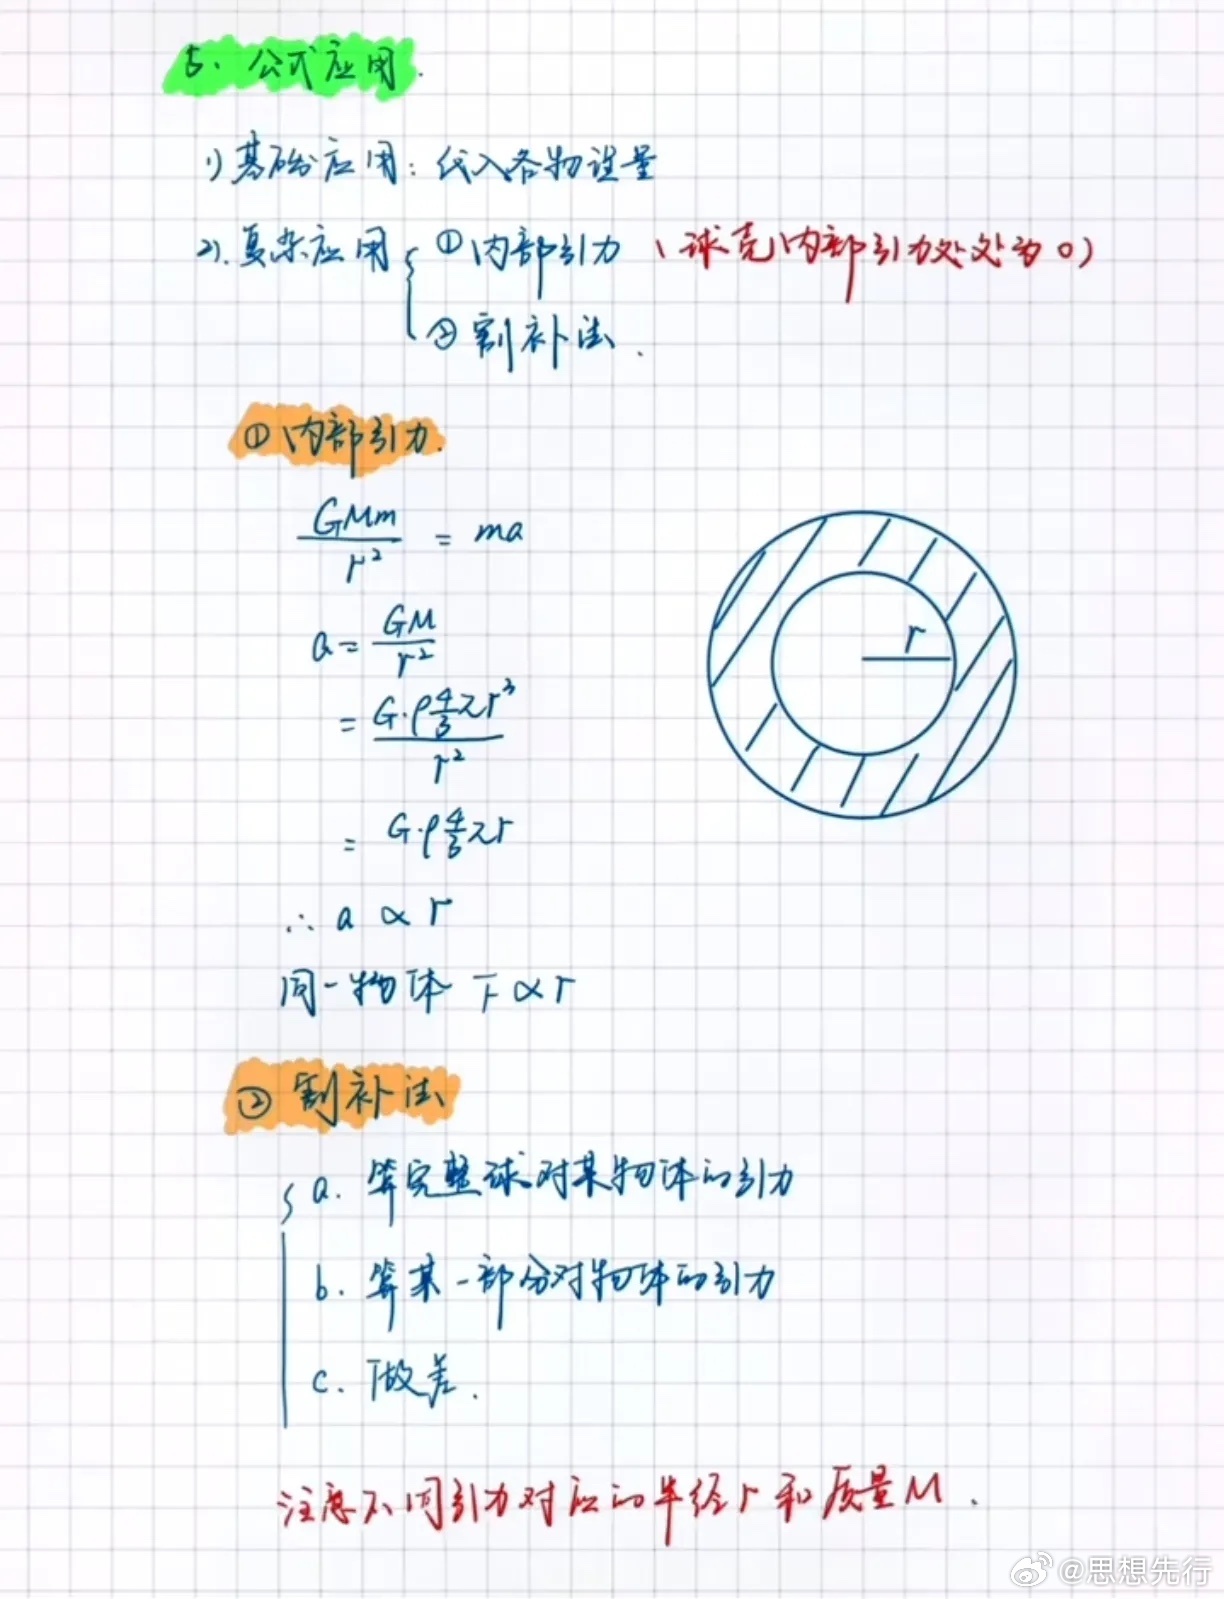 5、公式应用.
1) 基础应用：代入各物理量
2). 复杂应用 { ①内部引力 (球壳内部引力处处为0)
②割补法.
①内部引力.
GMm/r² = ma
a = GM/r²
= G·ρ4/3πr³/r²
= G·ρ4/3πr
r
∴ a ∝ r
同一物体 F∝r
② 割补法
a. 算完整球对某物体的引力
b. 算某一部分对物体的引力
c. 做差.
注意不同引力对应的半径r和质量M.
@思想先行